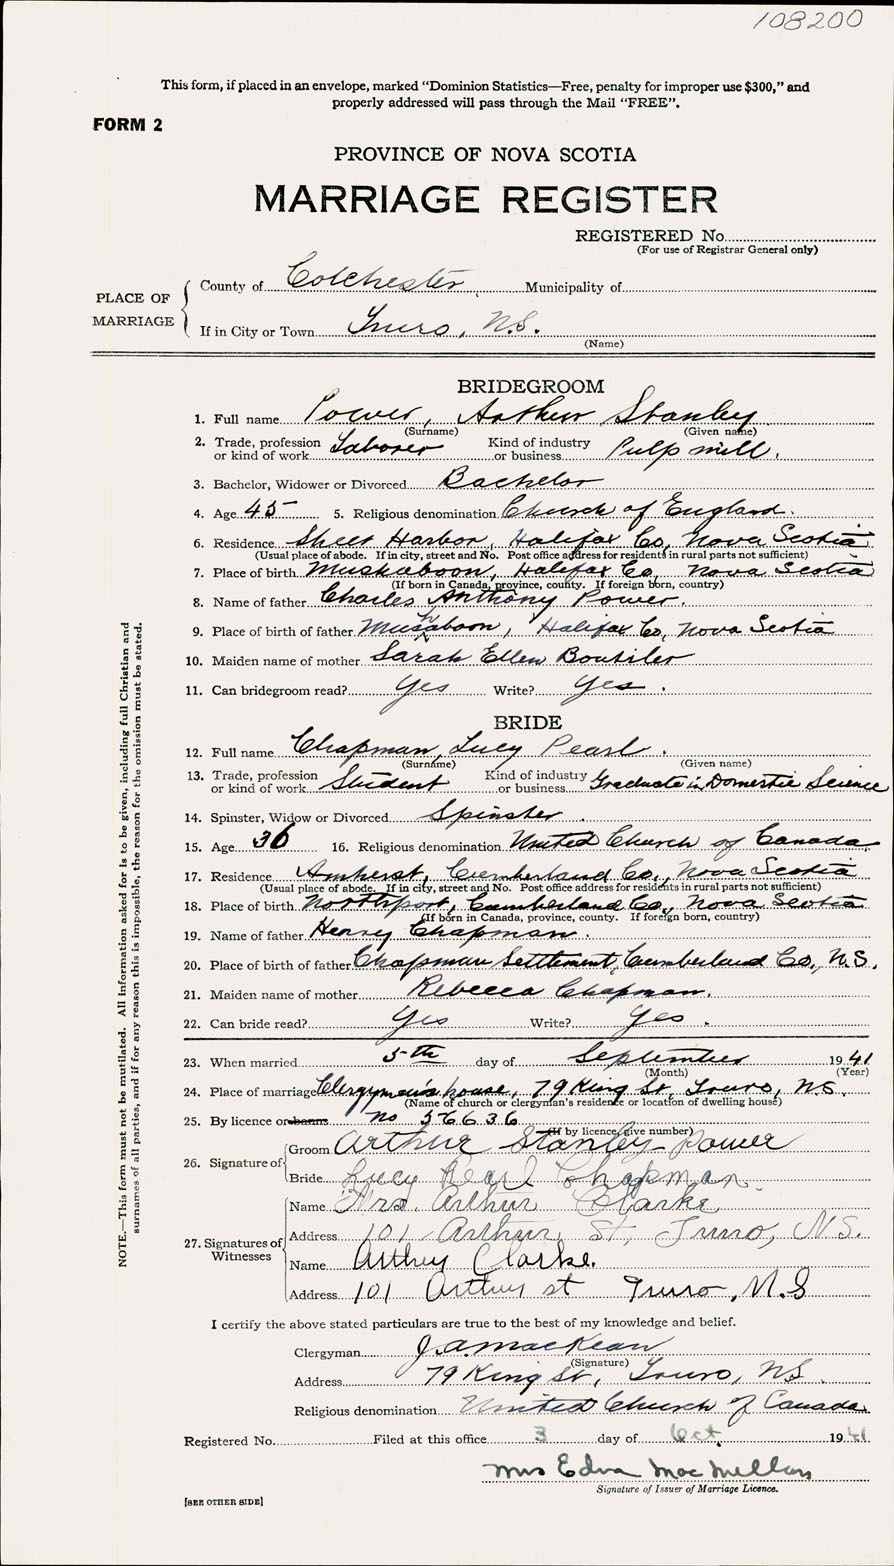 108200
This form, if placed in an envelope, marked “Dominion Statistics—Free, penalty for improper use $300,” and
properly addressed will pass through the Mail “FREE”.
FORM 2
PROVINCE OF NOVA SCOTIA
MARRIAGE REGISTER
REGISTERED No.
(For use of Registrar General only)
PLACE OF MARRIAGE
County of Colchester, Municipality of
If in City or Town Truro, N.S.
(Name)
BRIDEGROOM
1. Full name Power, Arthur Stanley
(Surname) (Given name)
2. Trade, profession or kind of work Laborer Kind of industry or business Pulp mill.
3. Bachelor, Widower or Divorced Bachelor
4. Age 45 5. Religious denomination Church of England.
6. Residence Sheet Harbor, Halifax Co, Nova Scotia
(Usual place of abode. If in city, street and No. Post office address for residents in rural parts not sufficient)
7. Place of birth Mushaboon, Halifax Co, Nova Scotia
(If born in Canada, province, county. If foreign born, country)
8. Name of father Charles Anthony Power.
9. Place of birth of father Mushaboon, Halifax Co, Nova Scotia
10. Maiden name of mother Sarah Ellen Boutilier
11. Can bridegroom read? Yes Write? Yes.
BRIDE
12. Full name Chapman, Lucy Pearl.
(Surname) (Given name)
13. Trade, profession or kind of work Student Kind of industry or business Graduate in Domestic Science
14. Spinster, Widow or Divorced Spinster.
15. Age 36 16. Religious denomination United Church of Canada.
17. Residence Amherst, Cumberland Co., Nova Scotia
(Usual place of abode. If in city, street and No. Post office address for residents in rural parts not sufficient)
18. Place of birth Northport, Cumberland Co., Nova Scotia
(If born in Canada, province, county. If foreign born, country)
19. Name of father Henry Chapman.
20. Place of birth of father Chapman Settlement, Cumberland Co., N.S.
21. Maiden name of mother Rebecca Chapman.
22. Can bride read? Yes Write? Yes.
23. When married 5th day of September 1941
(Month) (Year)
24. Place of marriage Clergyman's house, 79 King St, Truro, N.S.
(Name of church or clergyman's residence or location of dwelling house)
25. By licence or banns no 56636
(If by licence, give number)
26. Signature of
Groom Arthur Stanley Power
Bride Lucy Pearl Chapman.
27. Signatures of Witnesses
Name Mrs. Arthur Clarke
Address 101 Arthur St, Truro, N.S.
Name Arthur Clarke.
Address 101 Arthur st Truro, N.S
I certify the above stated particulars are true to the best of my knowledge and belief.
Clergyman J.A. MacKean
(Signature)
Address 79 King St, Truro, N.S.
Religious denomination United Church of Canada.
Registered No. Filed at this office 3 day of Oct. 1941
Mrs Edna MacMillan
Signature of Issuer of Marriage Licence.
[SEE OTHER SIDE]
NOTE.—This form must not be mutilated. All information asked for is to be given, including full Christian and
surnames of all parties, and if for any reason this is impossible, the reason for the omission must be stated.